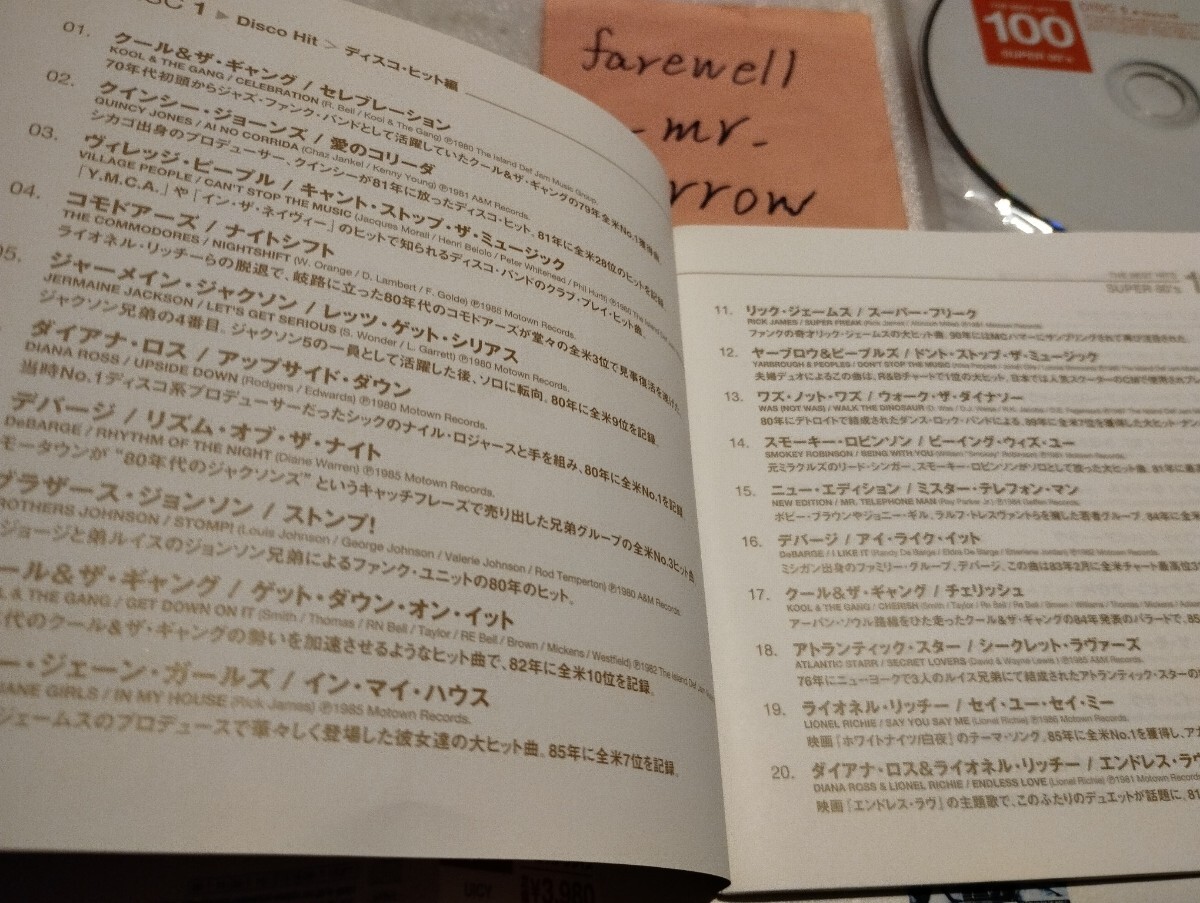 1 ▶ Disco Hit > ディスコ・ヒット編
01. クール&ザ・ギャング / セレブレーション
KOOL & THE GANG / CELEBRATION (R. Bell / Kool & The Gang) ℗1980 The Island Def Jam Music Group.
70年代初頭からジャズ・ファンク・バンドとして活躍していたクール&ザ・ギャングの79年全米No.1獲得曲
02. クインシー・ジョーンズ / 愛のコリーダ
QUINCY JONES / AI NO CORRIDA (Chaz Jankel / Kenny Young) ℗1981 A&M Records.
シカゴ出身のプロデューサー、クインシーが81年に放ったディスコ・ヒット。81年に全米28位のヒットを記録
03. ヴィレッジ・ピープル / キャント・ストップ・ザ・ミュージック
VILLAGE PEOPLE / CAN'T STOP THE MUSIC (Jacques Morali / Henri Belolo / Peter Whitehead / Phil Hurtt) ℗1980
「Y.M.C.A.」や「イン・ザ・ネイヴィー」のヒットで知られるディスコ・バンドのクラブ・プレイ・ヒット曲。
04. コモドアーズ / ナイトシフト
THE COMMODORES / NIGHTSHIFT (W. Orange / D. Lambert / F. Golde) ℗1985 Motown Records.
ライオネル・リッチーらの脱退で、岐路に立った80年代のコモドアーズが堂々の全米3位で見事復活を遂げた
05. ジャーメイン・ジャクソン / レッツ・ゲット・シリアス
JERMAINE JACKSON / LET'S GET SERIOUS (S. Wonder / L. Garrett) ℗1980 Motown Records.
ジャクソン兄弟の4番目。ジャクソン5の一員として活躍した後、ソロに転向。80年に全米9位を記録。
ダイアナ・ロス / アップサイド・ダウン
DIANA ROSS / UPSIDE DOWN (Rodgers / Edwards) ℗1980 Motown Records.
当時No.1ディスコ系プロデューサーだったシックのナイル・ロジャースと手を組み、80年に全米No.1を記録。
デバージ / リズム・オブ・ザ・ナイト
DeBARGE / RHYTHM OF THE NIGHT (Diane Warren) ℗1985 Motown Records.
モータウンが“80年代のジャクソンズ”というキャッチフレーズで売り出した兄弟グループの全米No.3ヒット曲
ブラザース・ジョンソン / ストンプ!
ROTHERS JOHNSON / STOMP! (Louis Johnson / George Johnson / Valerie Johnson / Rod Temperton) ℗1980 A&M Records.
ジョージと弟ルイスのジョンソン兄弟によるファンク・ユニットの80年のヒット。
ール&ザ・ギャング / ゲット・ダウン・オン・イット
L & THE GANG / GET DOWN ON IT (Smith / Thomas / RN Bell / Taylor / RE Bell / Brown / Mickens / Westfield) ℗1982 The Island Def Jam
代のクール&ザ・ギャングの勢いを加速させるようなヒット曲で、82年に全米10位を記録。
ー・ジェーン・ガールズ / イン・マイ・ハウス
JANE GIRLS / IN MY HOUSE (Rick James) ℗1985 Motown Records.
ジェームスのプロデュースで華々しく登場した彼女達の大ヒット曲。85年に全米7位を記録。
farewell
-mr.
rrow
THE BEST HITS
100
SUPER 80's
THE BEST HITS
SUPER 80's
11. リック・ジェームス / スーパー・フリーク
RICK JAMES / SUPER FREAK (Rick James / Alonzo Miller) ℗1981 Motown Records.
ファンクの奇才リック・ジェームスの大ヒット曲。90年にはMCハマーにサンプリングされて再び注目された。
12. ヤーブロウ&ピープルズ / ドント・ストップ・ザ・ミュージック
YARBROUGH & PEOPLES / DON'T STOP THE MUSIC
夫婦デュオによるこの曲は、R&Bチャートで1位の大ヒット。日本では人気スクーターのCMで使用されブ
13. ワズ・ノット・ワズ / ウォーク・ザ・ダイナソー
WAS (NOT WAS) / WALK THE DINOSAUR
80年にデトロイトで結成されたダンス・ロック・バンドによる、89年に全米7位を獲得した大ヒット・ナン
14. スモーキー・ロビンソン / ビーイング・ウィズ・ユー
SMOKEY ROBINSON / BEING WITH YOU (William "Smokey" Robinson) ℗1981 Motown Records.
元ミラクルズのリード・シンガー、スモーキー・ロビンソンがソロとして放った大ヒット曲。81年に
15. ニュー・エディション / ミスター・テレフォン・マン
NEW EDITION / MR. TELEPHONE MAN (Ray Parker Jr.) ℗1984 Geffen Records.
ボビー・ブラウンやジョニー・ギル、ラルフ・トレスヴァントらを擁した若者グループ。84年に全米
16. デバージ / アイ・ライク・イット
DeBARGE / I LIKE IT (Randy De Barge / Eldra De Barge / Etterlene Jordan) ℗1982 Motown Records.
ミシガン出身のファミリー・グループ、デバージ。この曲は83年2月に全米チャート最高位3
17. クール&ザ・ギャング / チェリッシュ
KOOL & THE GANG / CHERISH (Smith / Taylor / Rn Bell / Re Bell / Brown / Williams / Thomas / Mickens
アーバン・ソウル路線をひた走ったクール&ザ・ギャングの84年発表のバラードで、85
18. アトランティック・スター / シークレット・ラヴァーズ
ATLANTIC STARR / SECRET LOVERS (David & Wayne Lewis) ℗1985 A&M Records.
76年にニューヨークで3人のルイス兄弟にて結成されたアトランティック・スターの
19. ライオネル・リッチー / セイ・ユー・セイ・ミー
LIONEL RICHIE / SAY YOU SAY ME (Lionel Richie) ℗1986 Motown Records.
映画『ホワイトナイツ/白夜』のテーマ・ソング。85年に全米No.1を獲得し、アカ
20. ダイアナ・ロス&ライオネル・リッチー / エンドレス・ラヴ
DIANA ROSS & LIONEL RICHIE / ENDLESS LOVE (Lionel Richie) ℗1981 Motown Records
映画『エンドレス・ラヴ』の主題歌で、このふたりのデュエットが話題に。81
¥3,980